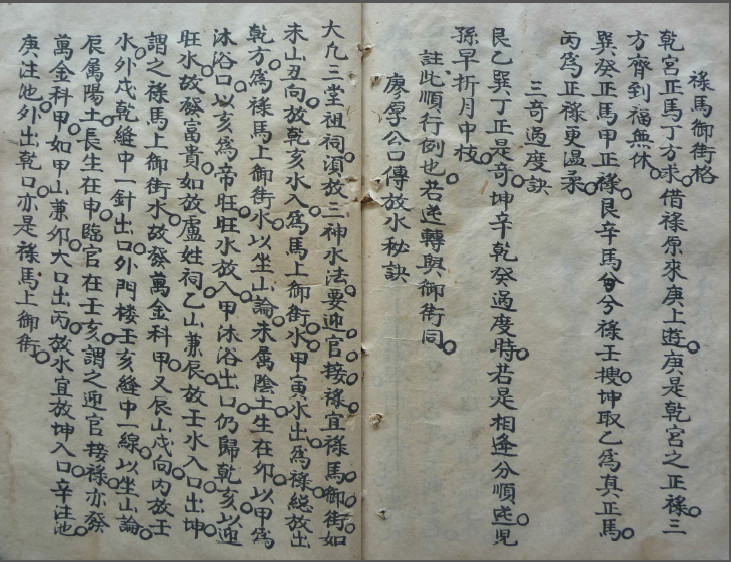 祿馬御街格
乾宮正馬丁方求。借祿原來庚上遊。庚是乾宮之正祿。三
方齊到福無休。
巽癸正馬甲正祿。艮辛馬兮祿壬搜。坤取乙為真正馬。
丙為正祿更溫柔。
三奇過度訣
艮乙巽丁正是奇。坤辛乾癸過度時。若是相逢分順逆。兒
孫早折月中枝。
註此順行例也。若逆轉與御街同。
廖厚公口傳放水秘訣
大凡三堂祖祠。湏放三神水法。要迎官接祿。宜祿馬御街。如
未山丑向。放乾亥水入。為馬上御街。水甲寅水出。為祿。總放出
乾方。為祿馬上御街水。以坐山論。未属陰土。生在卯。以甲為
沐浴。口以亥為帝旺。旺水放入。甲沐浴出口。仍歸乾亥。以迎
旺水。故發富貴。如放盧姓祠。乙山兼辰。放壬水入口。出坤。
謂之祿馬上御街水。故發萬金科甲。又辰山戌向。內放壬
水。外戌乾縫中一針出口。外門楼壬亥縫中一線。以坐山論。
辰属陽土。長生在申。臨官在壬亥。謂之迎官接祿。亦發
萬金科甲。如甲山兼卯。大口出丙。放水宜放坤入口。辛注池。
庚注池。外出乾口。亦是祿馬上御街。